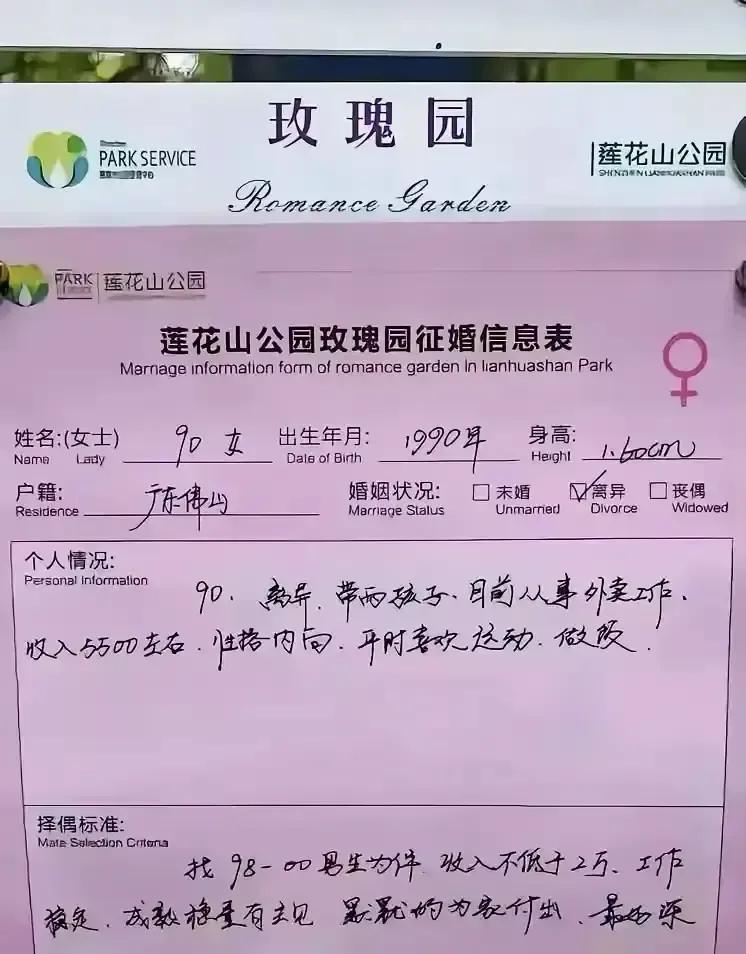 玫瑰园
PARK SERVICE
莲花山公园
Romance Garden
PARK
莲花山公园
莲花山公园玫瑰园征婚信息表
Marriage information form of romance garden in lianhuashan Park
姓名:(女士) 90 女 出生年月: 1990年 身高: 1.60cm
Name Lady Date of Birth Height
户籍: 广东佛山 婚姻状况: 未婚 离异 丧偶
Residence Marriage Status Unmarried Divorce Widowed
个人情况:
Personal Information
90. 离异. 带两孩子. 目前从事外卖工作.
收入5500左右. 性格内向. 平时喜欢运动. 做饭.
择偶标准:
Mate Selection Criteria
找 98-00男生为伴. 收入不低于2万. 工作
稳定. 成熟稳重有主见 默默的为家付出. 最好深